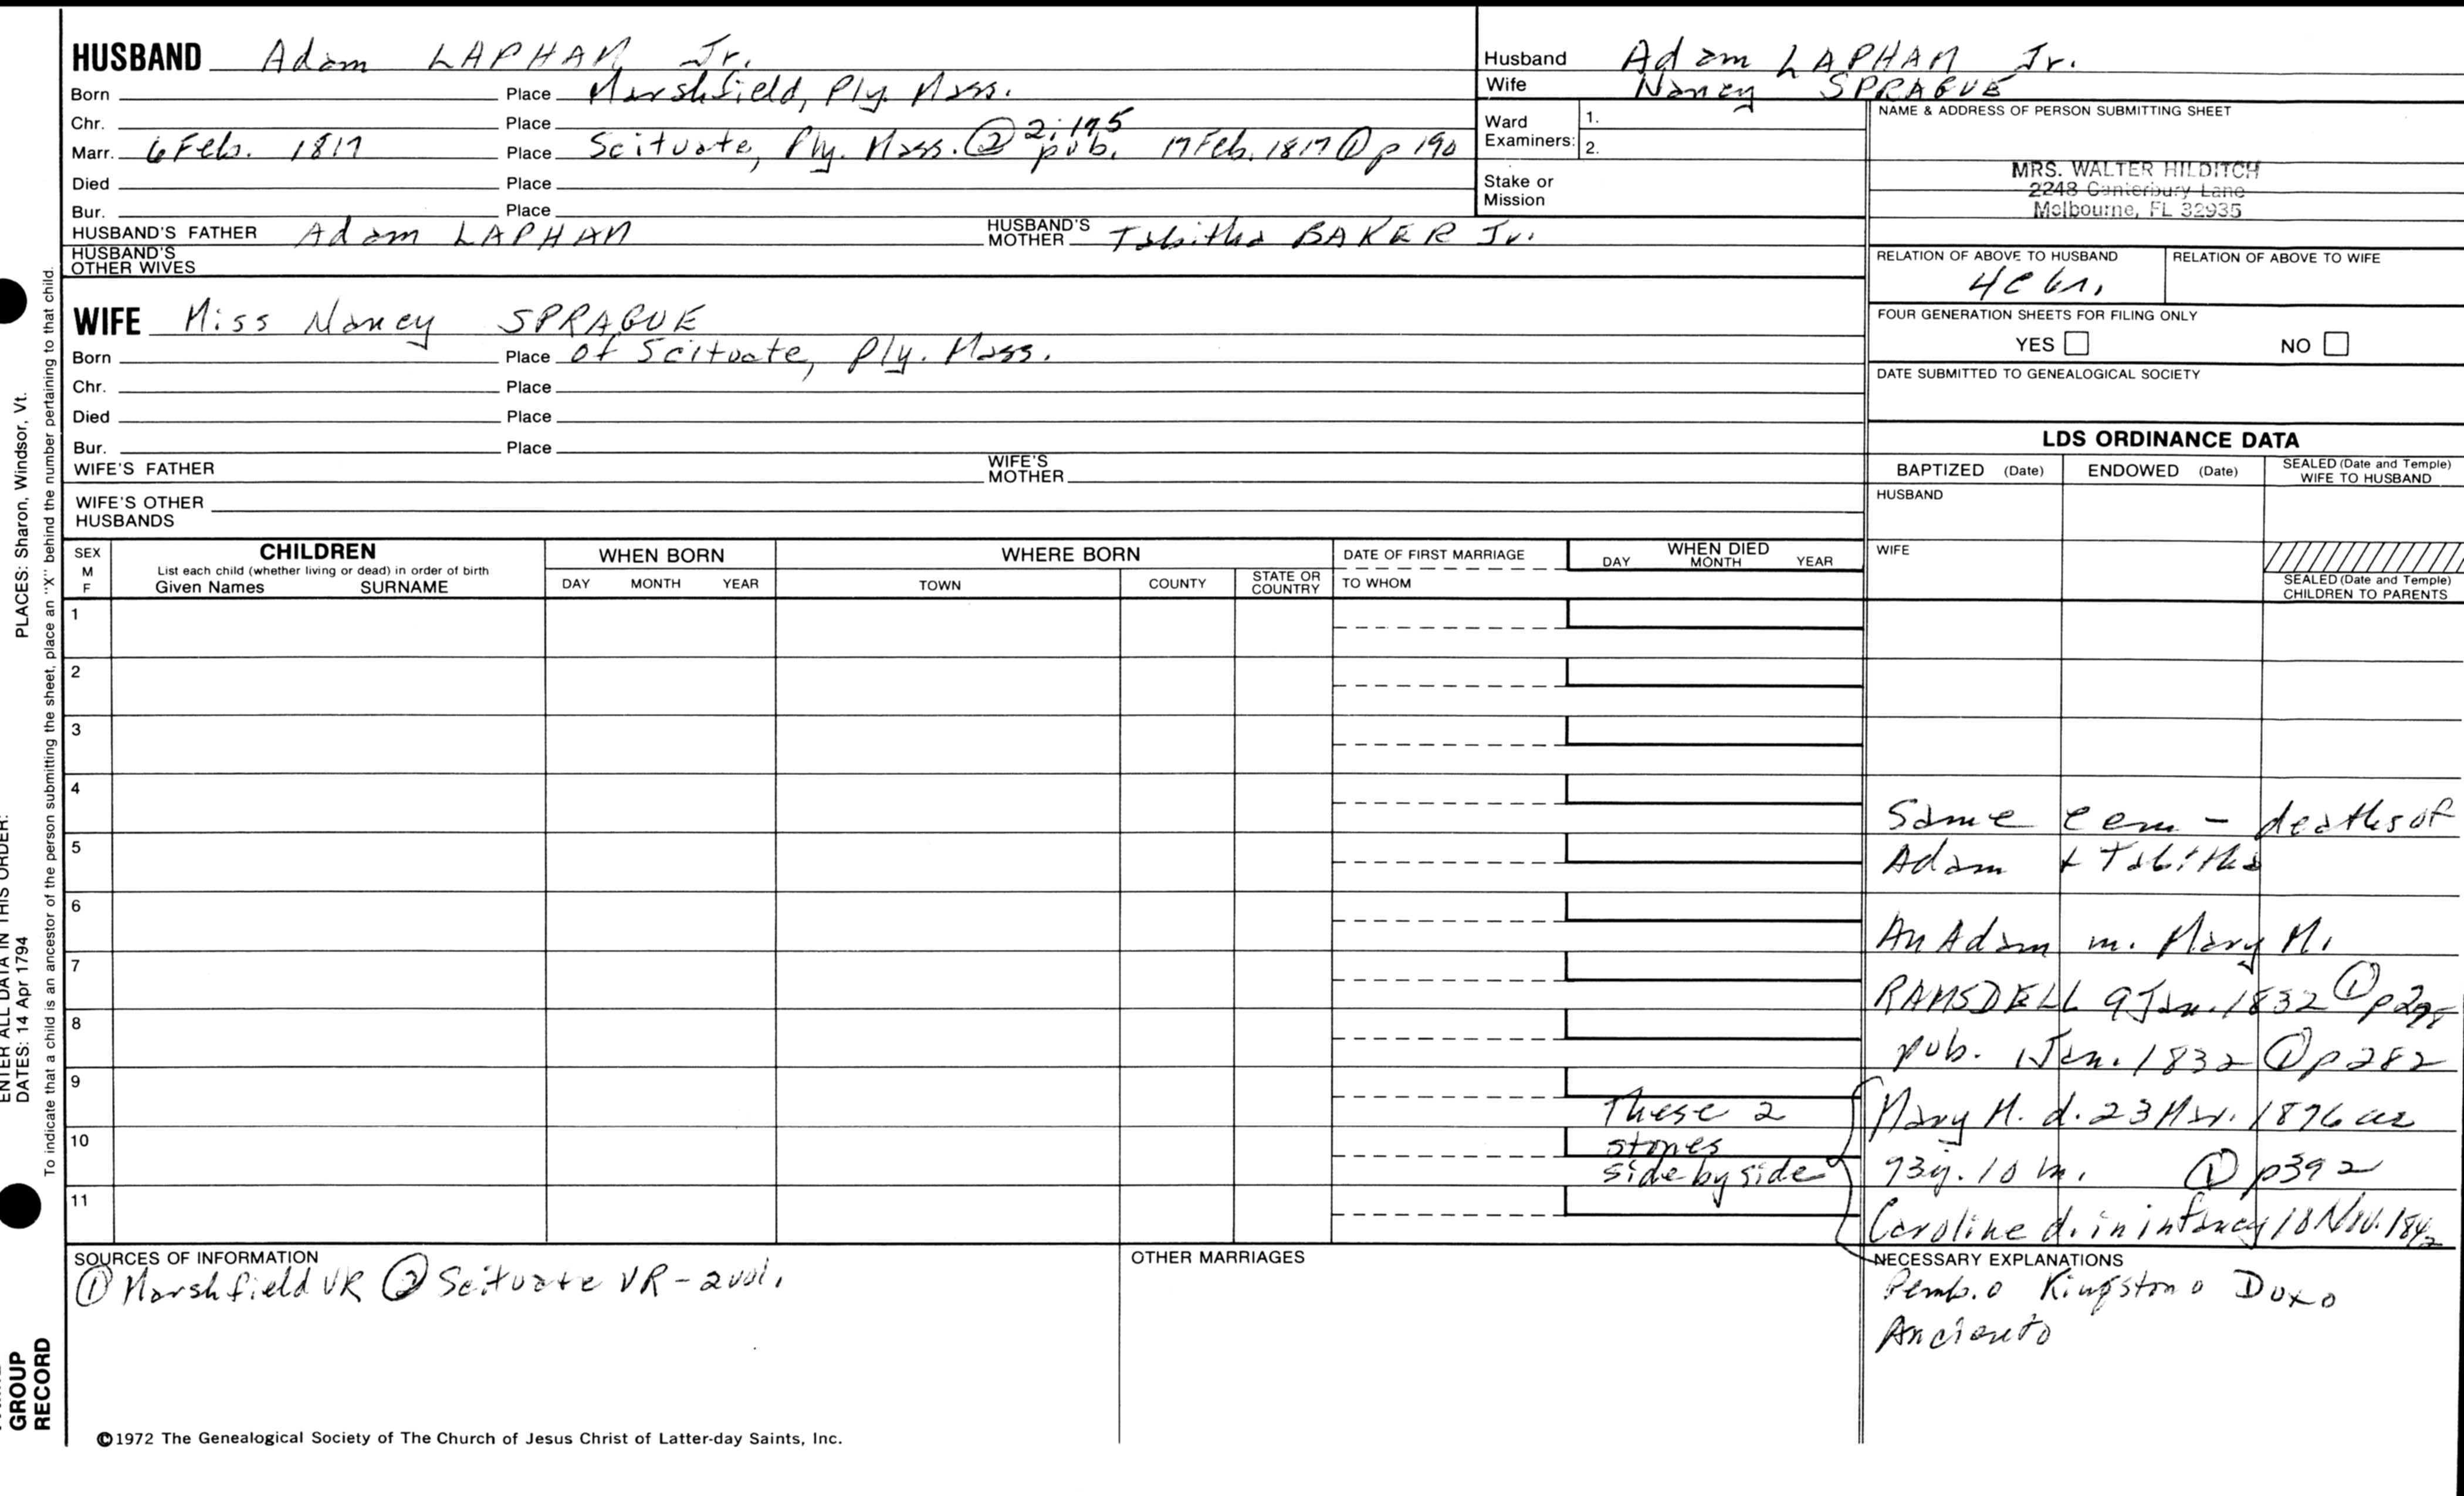 HUSBAND Adam LAPHAM Jr.
Born Place Marshfield, Ply. Mass.
Chr. Place 2:175
Marr. 6 Feb. 1817 Place Scituate, Ply. Mass. ② pub. 17 Feb. 1817 ① p 190
Died Place
Bur. Place
HUSBAND'S FATHER Adam LAPHAM HUSBAND'S MOTHER Tabitha BAKER Jr.
HUSBAND'S OTHER WIVES
WIFE Miss Nancy SPRAGUE
Born Place of Scituate, Ply. Mass.
Chr. Place
Died Place
Bur. Place
WIFE'S FATHER WIFE'S MOTHER
WIFE'S OTHER HUSBANDS
Husband Adam LAPHAM Jr.
Wife Nancy SPRAGUE
Ward Examiners: 1.
2.
Stake or Mission
NAME & ADDRESS OF PERSON SUBMITTING SHEET
MRS. WALTER HILDITCH
2248 Canterbury Lane
Melbourne, FL 32935
RELATION OF ABOVE TO HUSBAND RELATION OF ABOVE TO WIFE
FOUR GENERATION SHEETS FOR FILING ONLY
YES NO
DATE SUBMITTED TO GENEALOGICAL SOCIETY
LDS ORDINANCE DATA
BAPTIZED (Date) ENDOWED (Date) SEALED (Date and Temple) WIFE TO HUSBAND
HUSBAND
WIFE
SEALED (Date and Temple) CHILDREN TO PARENTS
SEX M F CHILDREN WHEN BORN WHERE BORN DATE OF FIRST MARRIAGE WHEN DIED
List each child (whether living or dead) in order of birth
Given Names SURNAME DAY MONTH YEAR TOWN COUNTY STATE OR COUNTRY TO WHOM DAY MONTH YEAR
1
2
3
4
5
6
7
8
9
10
11
Same cem - deaths of
Adam + Tabitha
An Adam m. Mary M.
RAMSDELL 9 Jan. 1832 ①
pub. 1 Jan. 1832 ① p 282
These 2
stones
side by side
Mary M. d. 23 Mar. 1876 ae
73y. 10 m. ① p392
Caroline d. in infancy 18 Nov. 1842
SOURCES OF INFORMATION
① Marshfield VR ② Scituate VR - 2 vol.
OTHER MARRIAGES
NECESSARY EXPLANATIONS
Pemb. o Kingston o Dux o
©1972 The Genealogical Society of The Church of Jesus Christ of Latter-day Saints, Inc.
PLACES: Sharon, Windsor, Vt.
ENTER ALL DATA IN THIS ORDER:
DATES: 14 Apr 1794
To indicate that a child is an ancestor of the person submitting the sheet, place an "X" behind the number pertaining to that child.
GROUP
RECORD